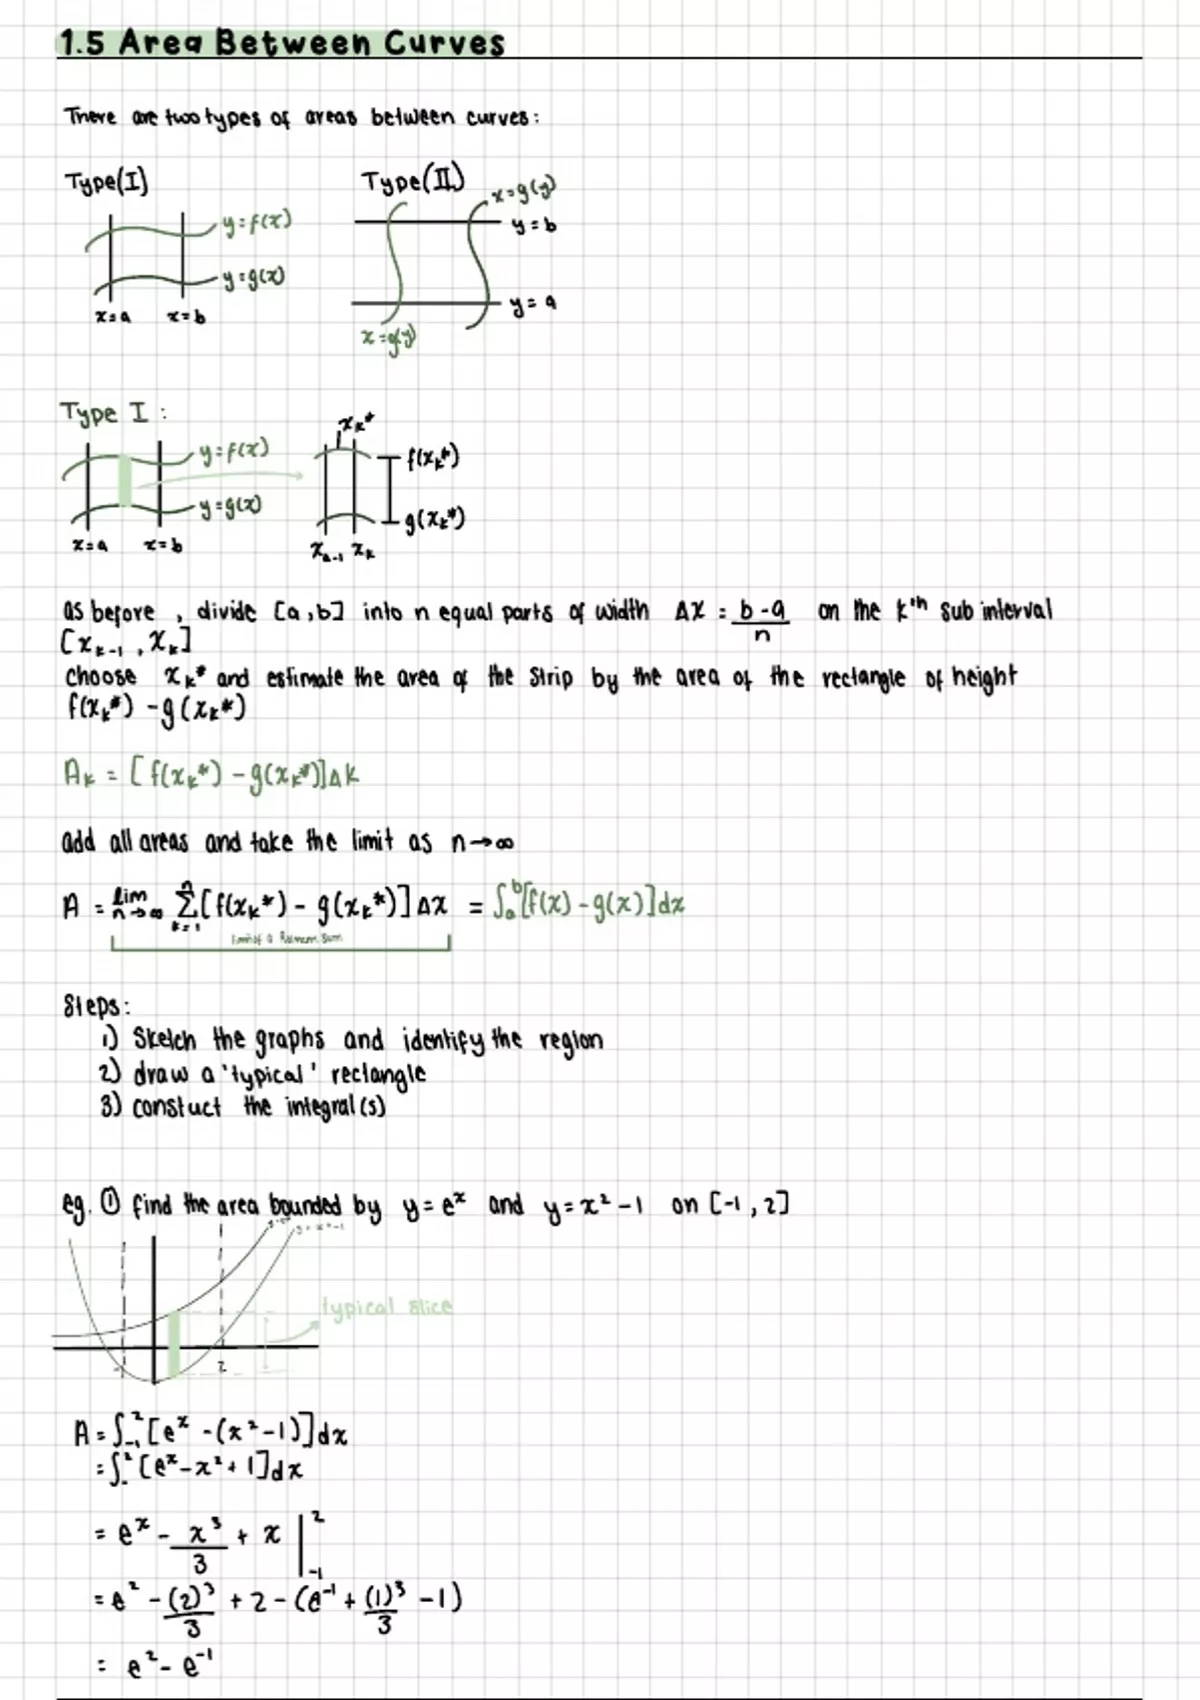 1.5 Area Between Curves
There are two types of areas between curves:
Type(I) Type(II)
x=g(y)
y=f(x) y=b
y=g(x)
y=a
x=a x=b
x=g(y)
Type I:
xₖ*
y=f(x) f(xₖ*)
y=g(x) g(xₖ*)
x=a x=b xₖ
as before, divide [a,b] into n equal parts of width Δx = b-a/n on the kᵗʰ sub interval
[xₖ₋₁, xₖ]
choose xₖ* and estimate the area of the strip by the area of the rectangle of height
f(xₖ*) - g(xₖ*)
Aₖ = [f(xₖ*) - g(xₖ*)]Δk
add all areas and take the limit as n→∞
A = lim n→∞ Σ k=1 n [f(xₖ*) - g(xₖ*)]Δx = ∫ₐᵇ[f(x) - g(x)]dx
limit of a Riemann Sum
Steps:
1) Sketch the graphs and identify the region
2) draw a 'typical' rectangle
3) constuct the integral(s)
eg. ① find the area bounded by y=eˣ and y=x²-1 on [-1,2]
typical slice
2
A = ∫₋₁² [eˣ - (x²-1)]dx
= ∫² [eˣ - x² + 1]dx
= eˣ - x³/3 + x |₋₁²
= e² - (2)³/3 + 2 - (e⁻¹ + (1)³/3 - 1)
= e² - e⁻¹